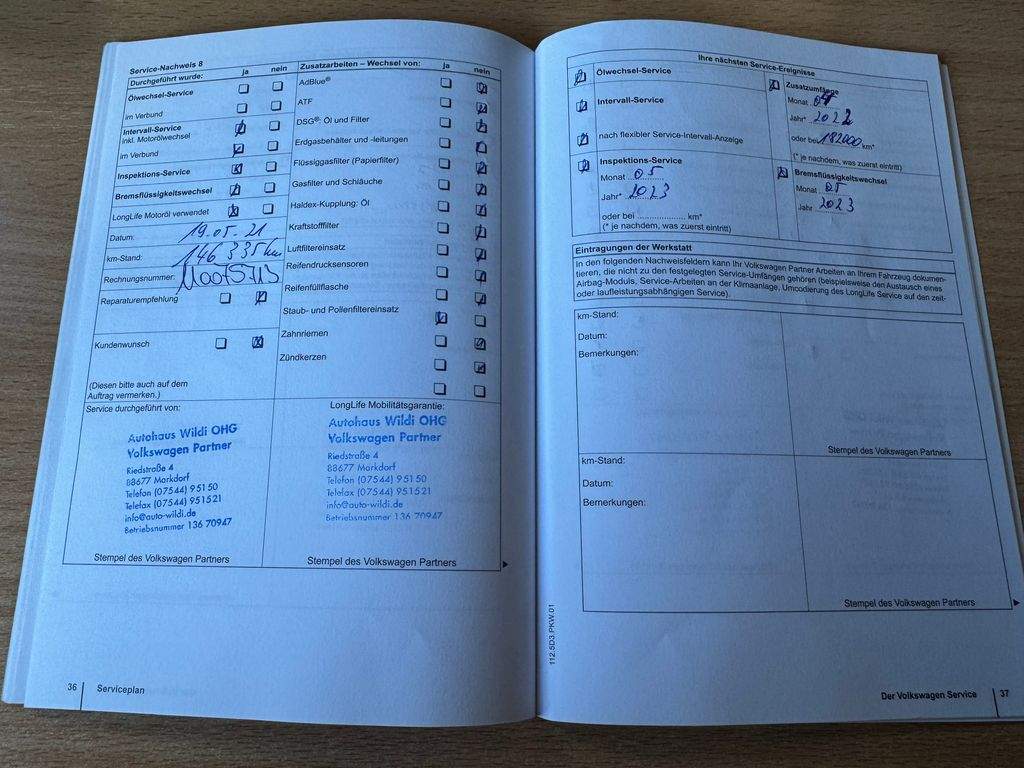 Service-Nachweis 8
Durchgeführt wurde: ja nein
Ölwechsel-Service
im Verbund
Intervall-Service
inkl. Motorölwechsel
im Verbund
Inspektions-Service
Bremsflüssigkeitswechsel
LongLife Motoröl verwendet
Datum: 19.05.21
km-Stand: 146 335 km
Rechnungsnummer:
Reparaturempfehlung
Kundenwunsch
(Diesen bitte auch auf dem
Auftrag vermerken.)
Zusatzarbeiten – Wechsel von: ja nein
AdBlue®
ATF
DSG®: Öl und Filter
Erdgasbehälter und -leitungen
Flüssiggasfilter (Papierfilter)
Gasfilter und Schläuche
Haldex-Kupplung: Öl
Kraftstofffilter
Luftfiltereinsatz
Reifendrucksensoren
Reifenfüllflasche
Staub- und Pollenfiltereinsatz
Zahnriemen
Zündkerzen
Service durchgeführt von:
Autohaus Wildi OHG
Volkswagen Partner
Riedstraße 4
88677 Markdorf
Telefon (07544) 951 50
Telefax (07544) 951521
info@auto-wildi.de
Betriebsnummer 136 70947
Stempel des Volkswagen Partners
LongLife Mobilitätsgarantie:
Autohaus Wildi OHG
Volkswagen Partner
Riedstraße 4
88677 Markdorf
Telefon (07544) 951 50
Telefax (07544) 951521
info@auto-wildi.de
Betriebsnummer 136 70947
Stempel des Volkswagen Partners
36 Serviceplan
Ihre nächsten Service-Ereignisse
Ölwechsel-Service
Intervall-Service
nach flexibler Service-Intervall-Anzeige
Inspektions-Service
Monat 05
Jahr* 2023
oder bei .................... km*
(* je nachdem, was zuerst eintritt)
Zusatzumfänge
Monat
Jahr* 2022
oder bei 182000 km*
(* je nachdem, was zuerst eintritt)
Bremsflüssigkeitswechsel
Monat 05
Jahr 2023
Eintragungen der Werkstatt
In den folgenden Nachweisfeldern kann Ihr Volkswagen Partner Arbeiten an Ihrem Fahrzeug dokumen-
tieren, die nicht zu den festgelegten Service-Umfängen gehören (beispielsweise den Austausch eines
Airbag-Moduls, Service-Arbeiten an der Klimaanlage, Umcodierung des LongLife Service auf den zeit-
oder laufleistungsabhängigen Service).
km-Stand:
Datum:
Bemerkungen:
Stempel des Volkswagen Partners
km-Stand:
Datum:
Bemerkungen:
Stempel des Volkswagen Partners
112.5D3.PKW.01
Der Volkswagen Service 37